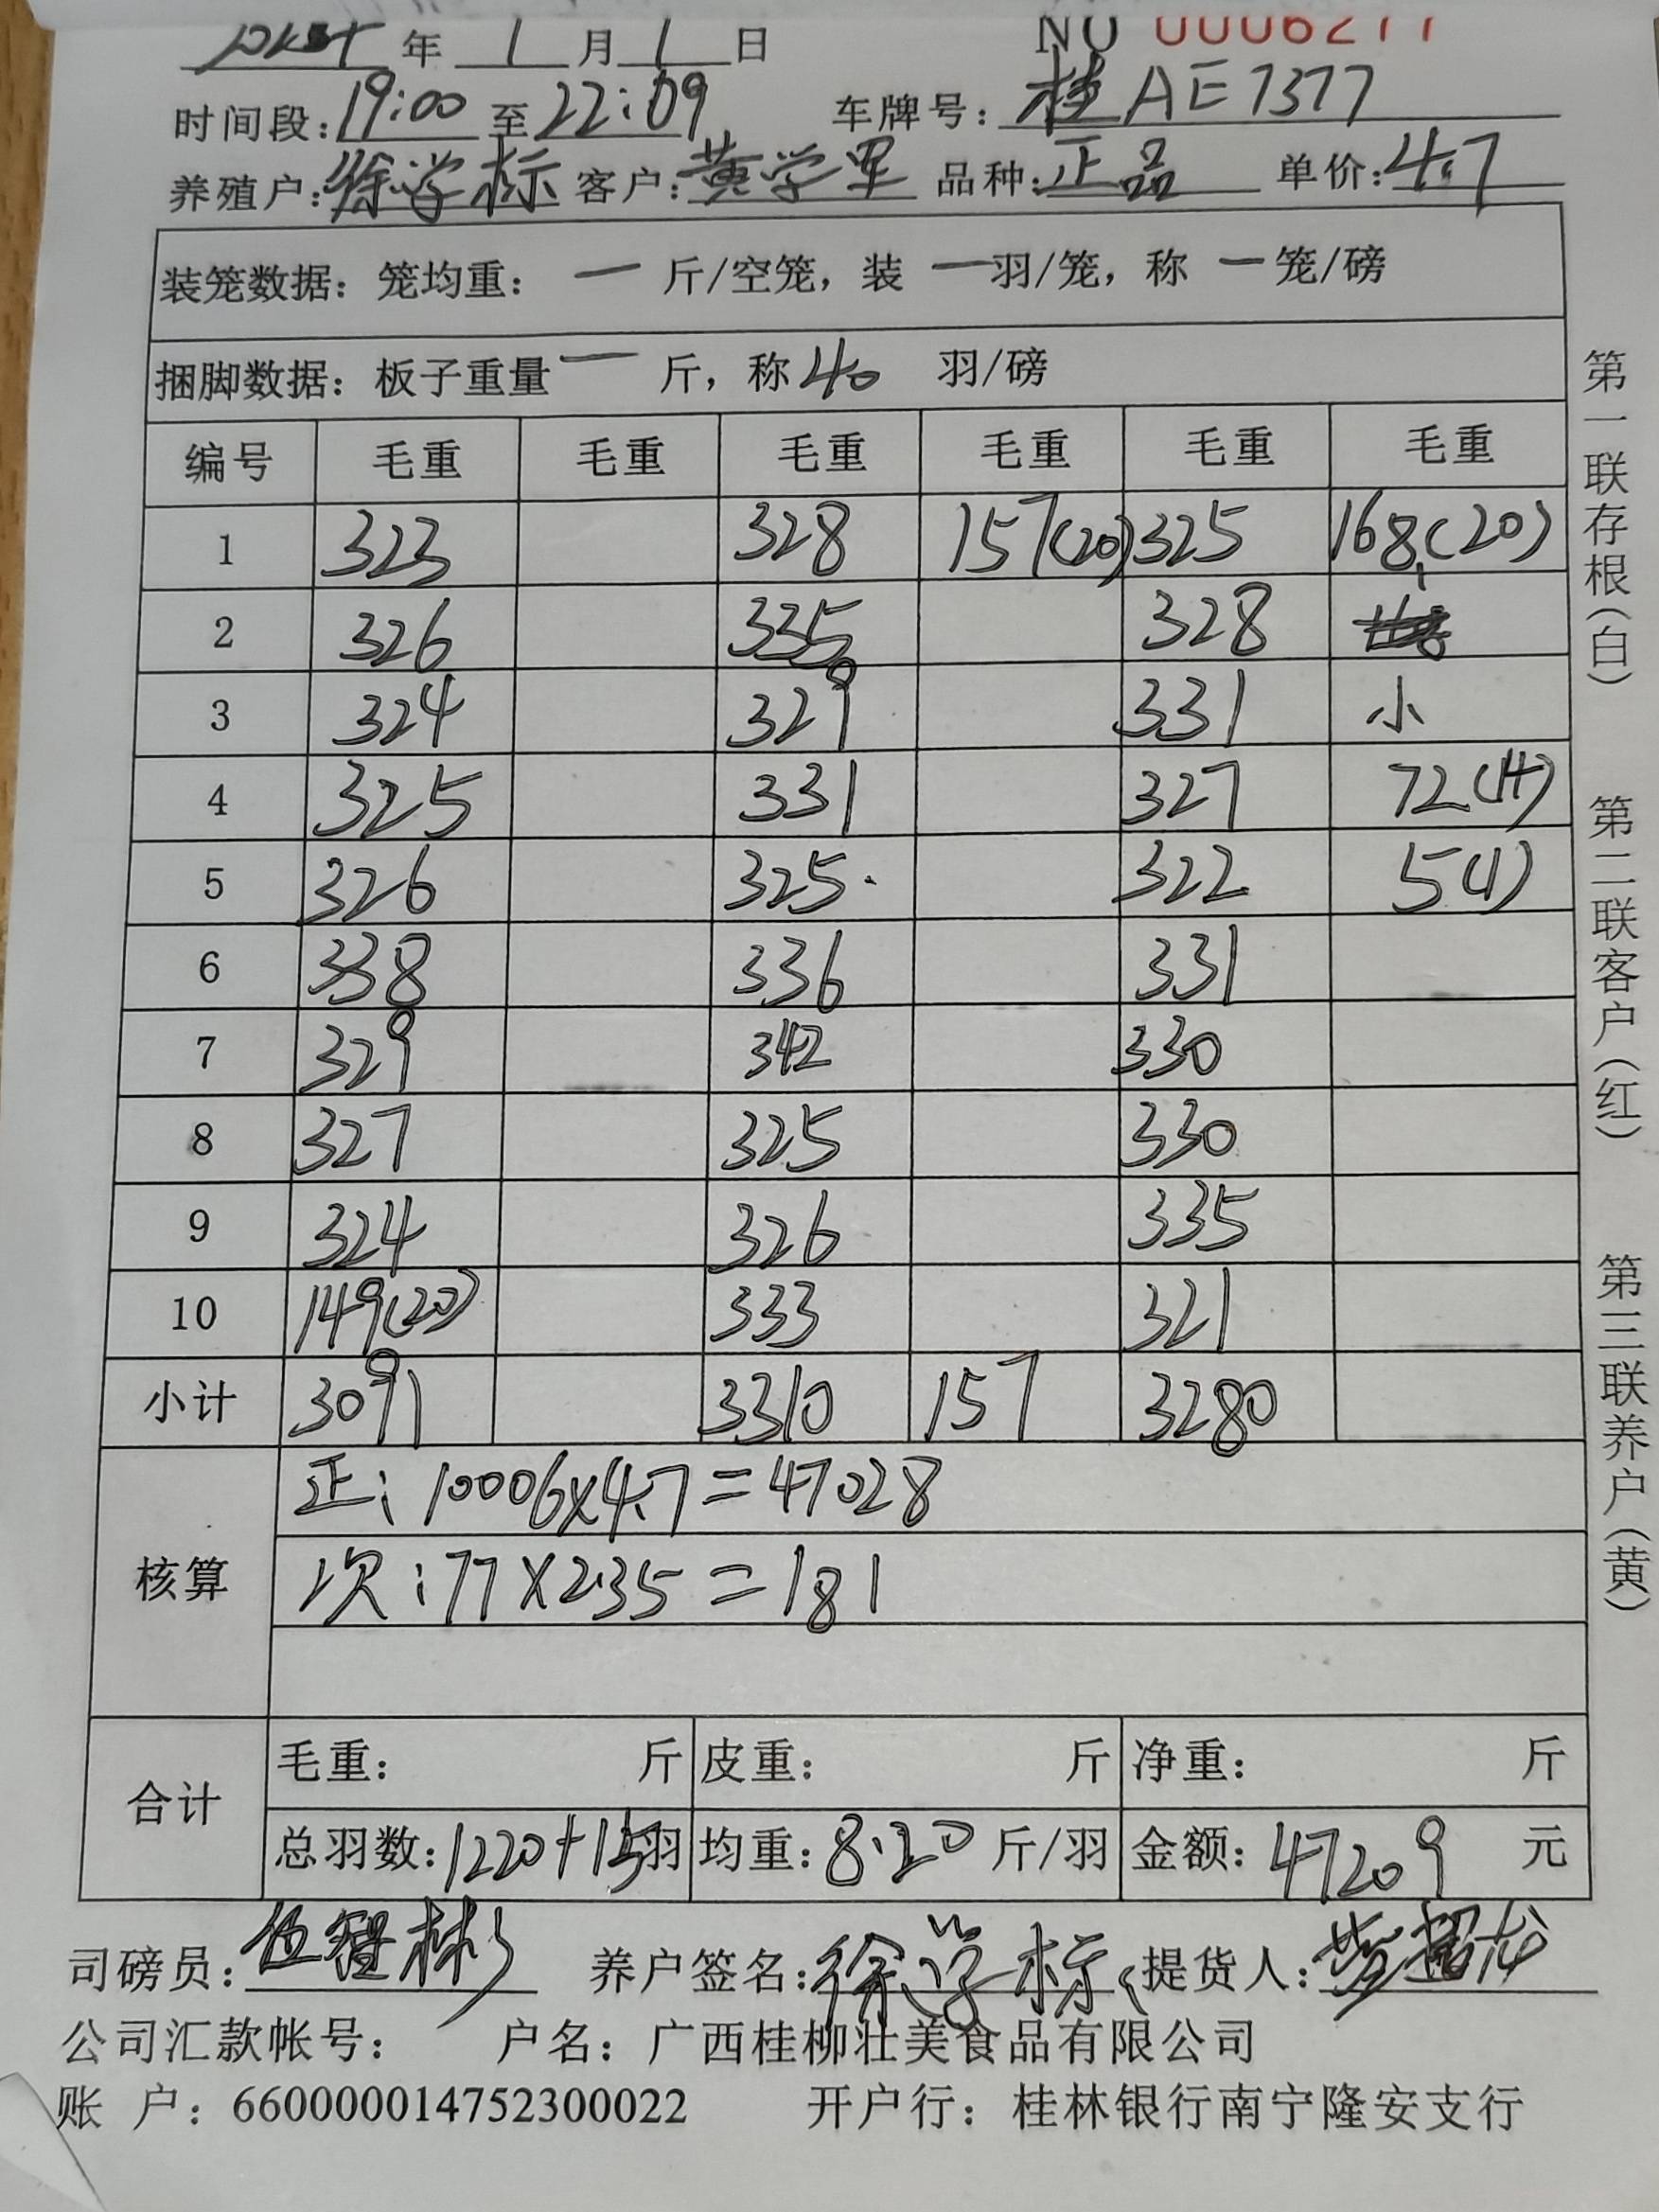 年 1 月 1 日 NO 0006277
时间段: 19:00 至 22:09 车牌号: 桂AE7377
养殖户: 徐学标 客户: 黄学军 品种: 正品 单价: 4.7
装笼数据: 笼均重: 一 斤/空笼, 装 一 羽/笼, 称 一 笼/磅
捆脚数据: 板子重量 一 斤, 称 40 羽/磅
编号 毛重 毛重 毛重 毛重 毛重 毛重
1 323 328 157(20) 325 168(20)
2 326 335 328
3 324 329 331 小
4 325 331 327 72(14)
5 326 325. 322 5(1)
6 338 336 331
7 329 342 330
8 327 325 330
9 324 326 335
10 149(20) 333 321
小计 3091 3310 157 3280
核算 正: 10006×4.7=47028
次: 77×2.35=181
合计 毛重: 斤 皮重: 斤 净重: 斤
总羽数: 1220+15羽 均重: 8.20 斤/羽 金额: 47209 元
司磅员: 养户签名: 徐学标 提货人:
公司汇款帐号: 户名: 广西桂柳壮美食品有限公司
账 户: 660000014752300022 开户行: 桂林银行南宁隆安支行
第一联存根(白) 第二联客户(红) 第三联养户(黄)